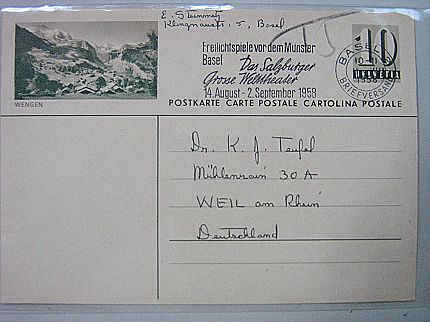 E. Steinmetz
Klingnaustr. 5, Basel
Freilichtspiele vor dem Münster
Basel Das Salzburger
Grosse Welttheater
14. August - 2. September 1958
BASEL
10
HELVETIA
BRIEFVERSAND
WENGEN
POSTKARTE CARTE POSTALE CARTOLINA POSTALE
Dr. K. J. Teufel
Mühlenrain 30 A
WEIL am Rhein
Deutschland